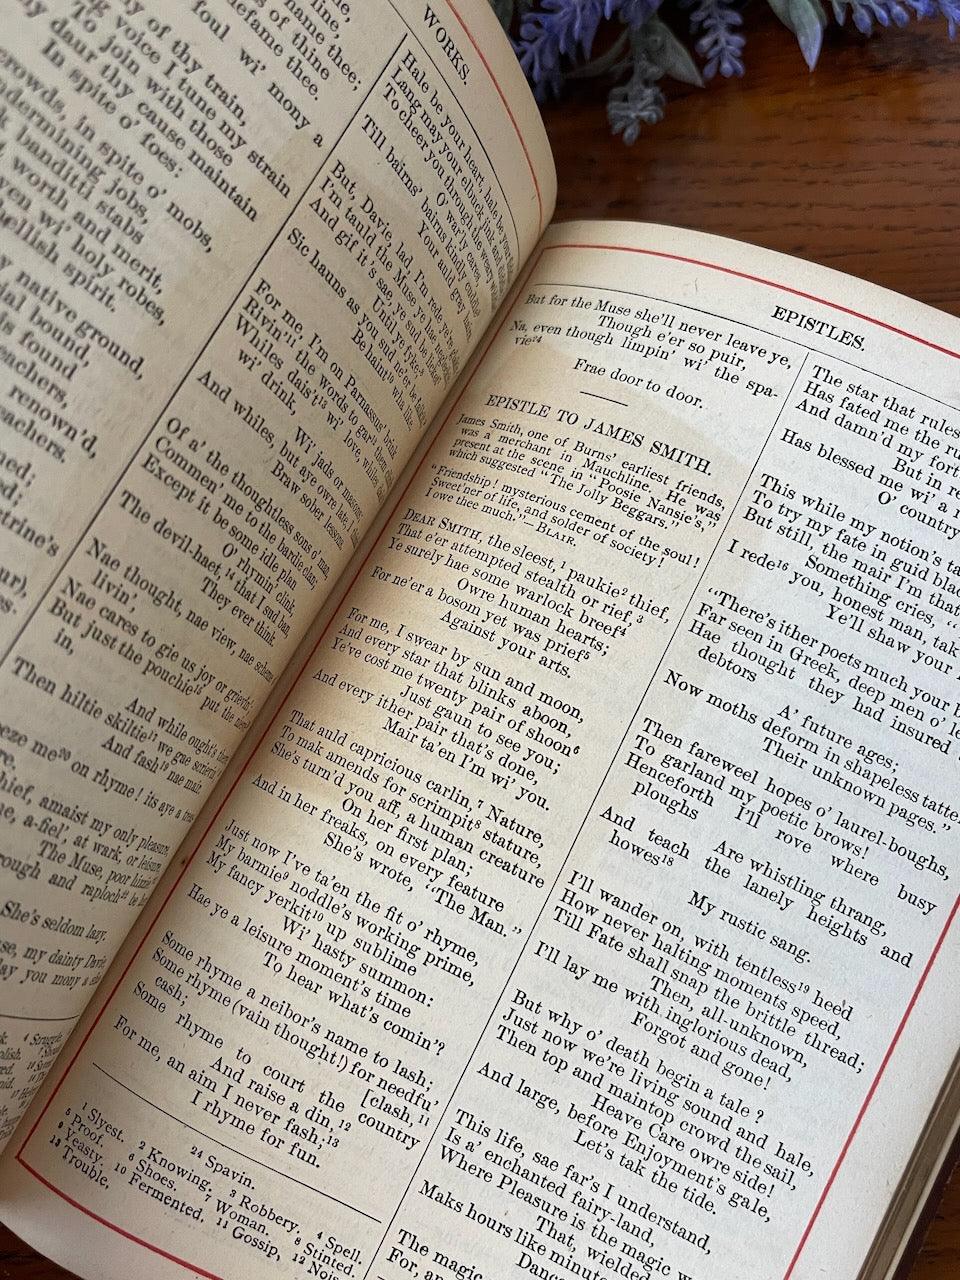 WORKS.
line,
name thee;
s of thine
defame thee.
foul wi' mony a
of thy train,
voice I tune my strain
To join with those
daur thy cause maintain
In spite o' foes:
crowds, in spite o' mobs,
undermining jobs,
banditti stabs
worth and merit,
wi' holy robes,
hellish spirit.
native ground,
bound,
is found
renown'd,
Hale be your heart, hale be your
Lang may your elbuck jink and
To cheer you through the weary
O' war'ly cares,
Till bairns' bairns kindly cuddle
Your auld gray
But, Davie, lad, I'm rede ye're
I'm tauld the Muse ye hae
And gif it's sae, ye sud be
Until ye fyke;
Sic hauns as you sud ne'er be
Be hain't wha like.
For me, I'm on Parnassus' brink
Rivin'¹¹ the words to gar¹²
Whiles dais't¹³ wi' love, whiles
wi' drink,
Wi' jads or masons;
And whiles, but aye owre late, I
Braw sober lessons.
Of a' the thoughtless sons o' man,
Commen' me to the bardie clan;
Except it be some idle plan
O' rhymin' clink,
The devil-haet,¹⁴ that I sud ban,
They ever think.
Nae thought, nae view, nae scheme
livin',
Nae cares to gie us joy or grievin';
But just the pouchie¹⁵ put the
in,
And while ought's there,
Then hiltie skiltie¹⁷ we gae scrievin',
And fash¹⁹ nae mair.
Leeze me²⁰ on rhyme! its aye a
chief, amaist my only pleasure,
a-fiel', at wark, or leisure,
The Muse, poor hizzie!
rough and raploch²²
She's seldom lazy.
my dainty Davie
may you mony a
EPISTLES.
But for the Muse she'll never leave ye,
Though e'er so puir,
Na, even though limpin' wi' the spa-
vie²⁴
Frae door to door.
EPISTLE TO JAMES SMITH.
James Smith, one of Burns' earliest friends,
was a merchant in Mauchline. He was
present at the scene in "Poosie Nansie's,"
which suggested "The Jolly Beggars."
"Friendship! mysterious cement of the soul!
Sweet'ner of life, and solder of society!
I owe thee much."—BLAIR.
DEAR SMITH, the sleest,¹ paukie² thief,
That e'er attempted stealth or rief,³
Ye surely hae some warlock breef⁴
Owre human hearts;
For ne'er a bosom yet was prief⁵
Against your arts.
For me, I swear by sun and moon,
And every star that blinks aboon,
Ye've cost me twenty pair of shoon⁶
Just gaun to see you;
And every ither pair that's done,
Mair ta'en I'm wi' you.
That auld capricious carlin,⁷ Nature,
To mak amends for scrimpit⁸ stature,
She's turn'd you aff, a human creature
On her first plan;
And in her freaks, on every feature
She's wrote, "The Man."
Just now I've ta'en the fit o' rhyme,
My barmie⁹ noddle's working prime,
My fancy yerkit¹⁰ up sublime
Wi' hasty summon:
Hae ye a leisure moment's time
To hear what's comin'?
Some rhyme a neibor's name to lash;
Some rhyme (vain thought!) for needfu'
cash;
Some rhyme to court the country
[clash,¹¹
And raise a din,¹²
For me, an aim I never fash;¹³
I rhyme for fun.
24 Spavin.
1 Slyest. 2 Knowing. 3 Robbery. 4 Spell.
5 Proof. 6 Shoes. 7 Woman. 8 Stinted.
9 Yeasty. 10 Fermented. 11 Gossip, 12 Nois
13 Trouble,
The star that rules
Has fated me the ru
And damn'd my fort
But in re
Has blessed me wi' a r
O' country
This while my notion's ta
To try my fate in guid blac
But still, the mair I'm that
Something cries, "
I rede¹⁶ you, honest man, tak
Ye'll shaw your
"There's ither poets much your b
Far seen in Greek, deep men o' le
Hae thought they had insured
debtors
A' future ages;
Now moths deform in shapeless tatte
Their unknown pages."
Then fareweel hopes o' laurel-boughs,
To garland my poetic brows!
Henceforth I'll rove where busy
ploughs
Are whistling thrang,
And teach the lonely heights and
howes¹⁸
My rustic sang.
I'll wander on, with tentless¹⁹ heed
How never halting moments speed,
Till Fate shall snap the brittle thread;
Then, all unknown,
I'll lay me with inglorious dead,
Forgot and gone!
But why o' death begin a tale?
Just now we're living sound and hale,
Then top and maintop crowd the sail,
Heave Care owre side!
And large, before Enjoyment's gale,
Let's tak the tide.
This life, sae far's I understand,
Is a' enchanted fairy-land,
Where Pleasure is the magic w
That, wielded
Maks hours like minute
Danc
The magic
For, an